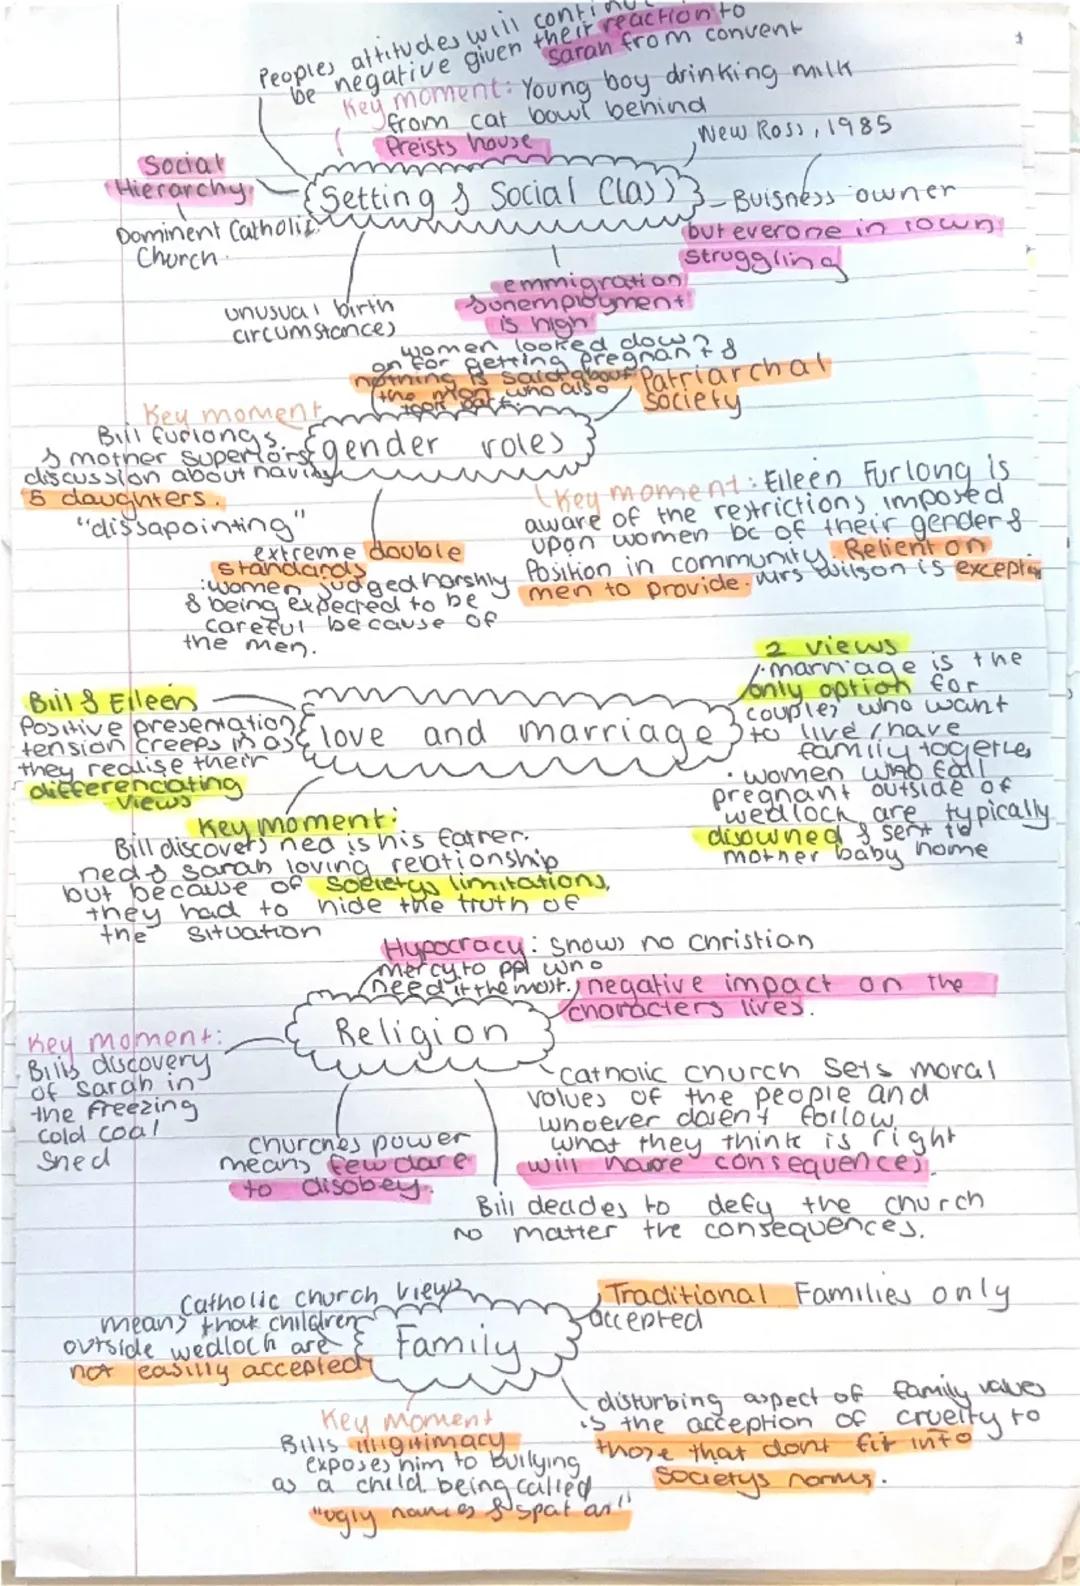 Peoples attitudes will
be negative given their reaction to
sarah from convent
Key moment: Young boy drinking milk
from cat bowl behind
Preists house
New Ross, 1985
Social
Hierarchy
Dominent Catholic
Church
Setting & Social Class
Buisness owner
but everone in town
struggling
unusual birth
circumstances
emmigration
& unemployment
is high
women looked down
on for getting pregnant &
nothing is said about
the men who also
took part
Patriarchal
society
Key moment
Bill furlongs
& mother superiors
discussion about having
5 daughters.
"dissapointing"
gender roles
extreme double
standards
: women judged harshly
& being expected to be
careful because of
the men.
Key moment: Eileen Furlong is
aware of the restrictions imposed
upon women bc of their gender &
Position in community. Relient on
men to provide. Mrs Wilson is
Bill & Eileen
Positive presentation
tension creeps in as
they realise their
differenciating
views
love and marriage
2 views
· marriage is the
only option for
couples who want
to live/have
family together
· women who fall
pregnant outside of
wedlock are typically
disowned & sent to
mother baby home
Key moment:
Bill discovers ned is his father.
ned & sarah loving relationship
but because of societys limitations,
they had to hide the truth of
the situation
Hypocracy: shows no christian
mercy to ppl who
need it the most.
negative impact on the
characters lives.
Religion
Key moment:
Bills discovery
of sarah in
the freezing
cold coal
shed
Churches power
means few dare
to disobey.
Catholic church sets moral
values of the people and
whoever doesn't follow
what they think is right
will have consequences.
Bill decides to defy the church
no matter the consequences.
Catholic church views
means that children
outside wedlock are
not easilly accepted
Family
Traditional Families only
accepted
Key Moment
Bills illigitimacy
exposes him to bullying
as a child being called
"ugly names & spat at"
disturbing aspect of family values
is the acception of cruelty to
those that dont fit into
societys norms.